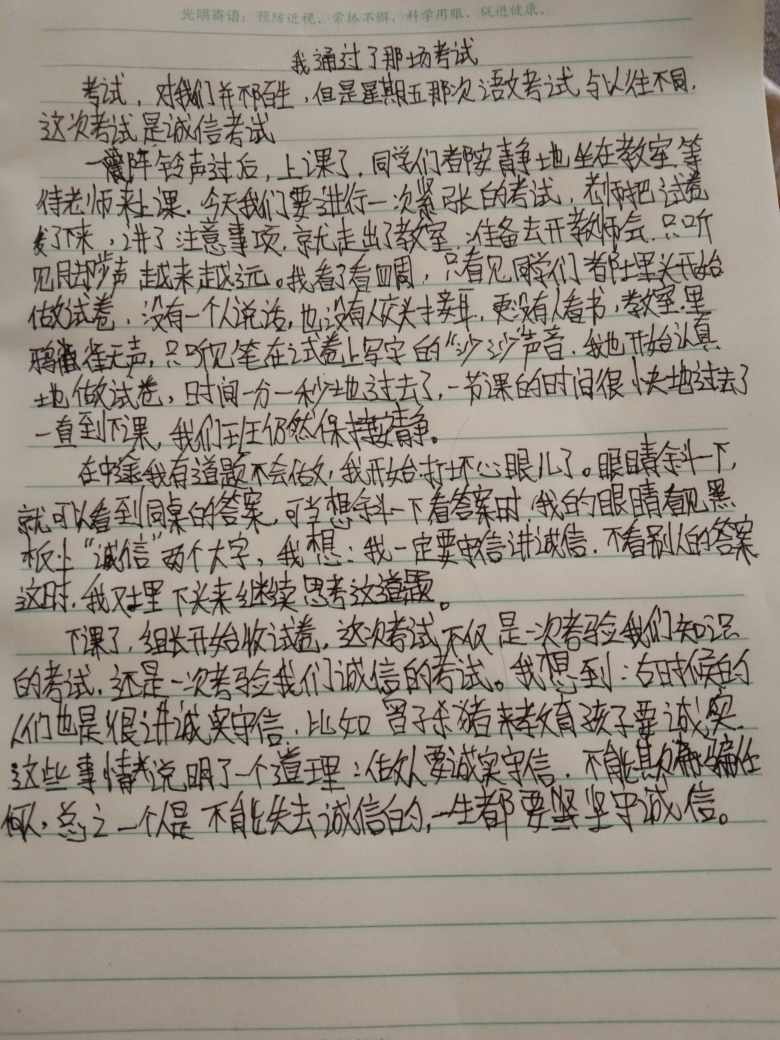 光明寄语：预防近视，常抓不懈，科学用眼，促进健康。
我通过了那场考试
考试，对我们并不陌生，但是星期五那次语文考试与以往不同，
这次考试是诚信考试
一阵铃声过后，上课了，同学们都安静地坐在教室，等
待老师来上课。今天我们要进行一次紧张的考试，老师把试卷
发了下来，讲了注意事项，就走出了教室，准备去开教师会，只听
见脚步声越来越远。我看了看四周，只看见同学们都埋头开始
做试卷，没有一个人说话，也没有人交头接耳，更没有人看书，教室里
鸦雀无声，只听见笔在试卷上写字的“沙沙”声音，我也开始认真
地做试卷，时间一分一秒地过去了，一节课的时间很快地过去了
一直到下课，我们班仍然保持安静。
在中途我有道题不会做，我开始打坏心眼儿了。眼睛斜一下，
就可以看到同桌的答案，可当想斜一下看答案时，我的眼睛看见黑
板上“诚信”两个大字，我想：我一定要守信讲诚信，不看别人的答案
这时，我又埋下头来继续思考这道题。
下课了，组长开始收试卷，这次考试不仅是一次考验我们知识
的考试，还是一次考验我们诚信的考试。我想到：古时候的
人们也是很讲诚实守信，比如曾子杀猪来教育孩子要诚实
这些事情都说明了一个道理：做人要诚实守信，不能欺骗任
何人，总之一个人是不能失去诚信的，一生都要坚守诚信。